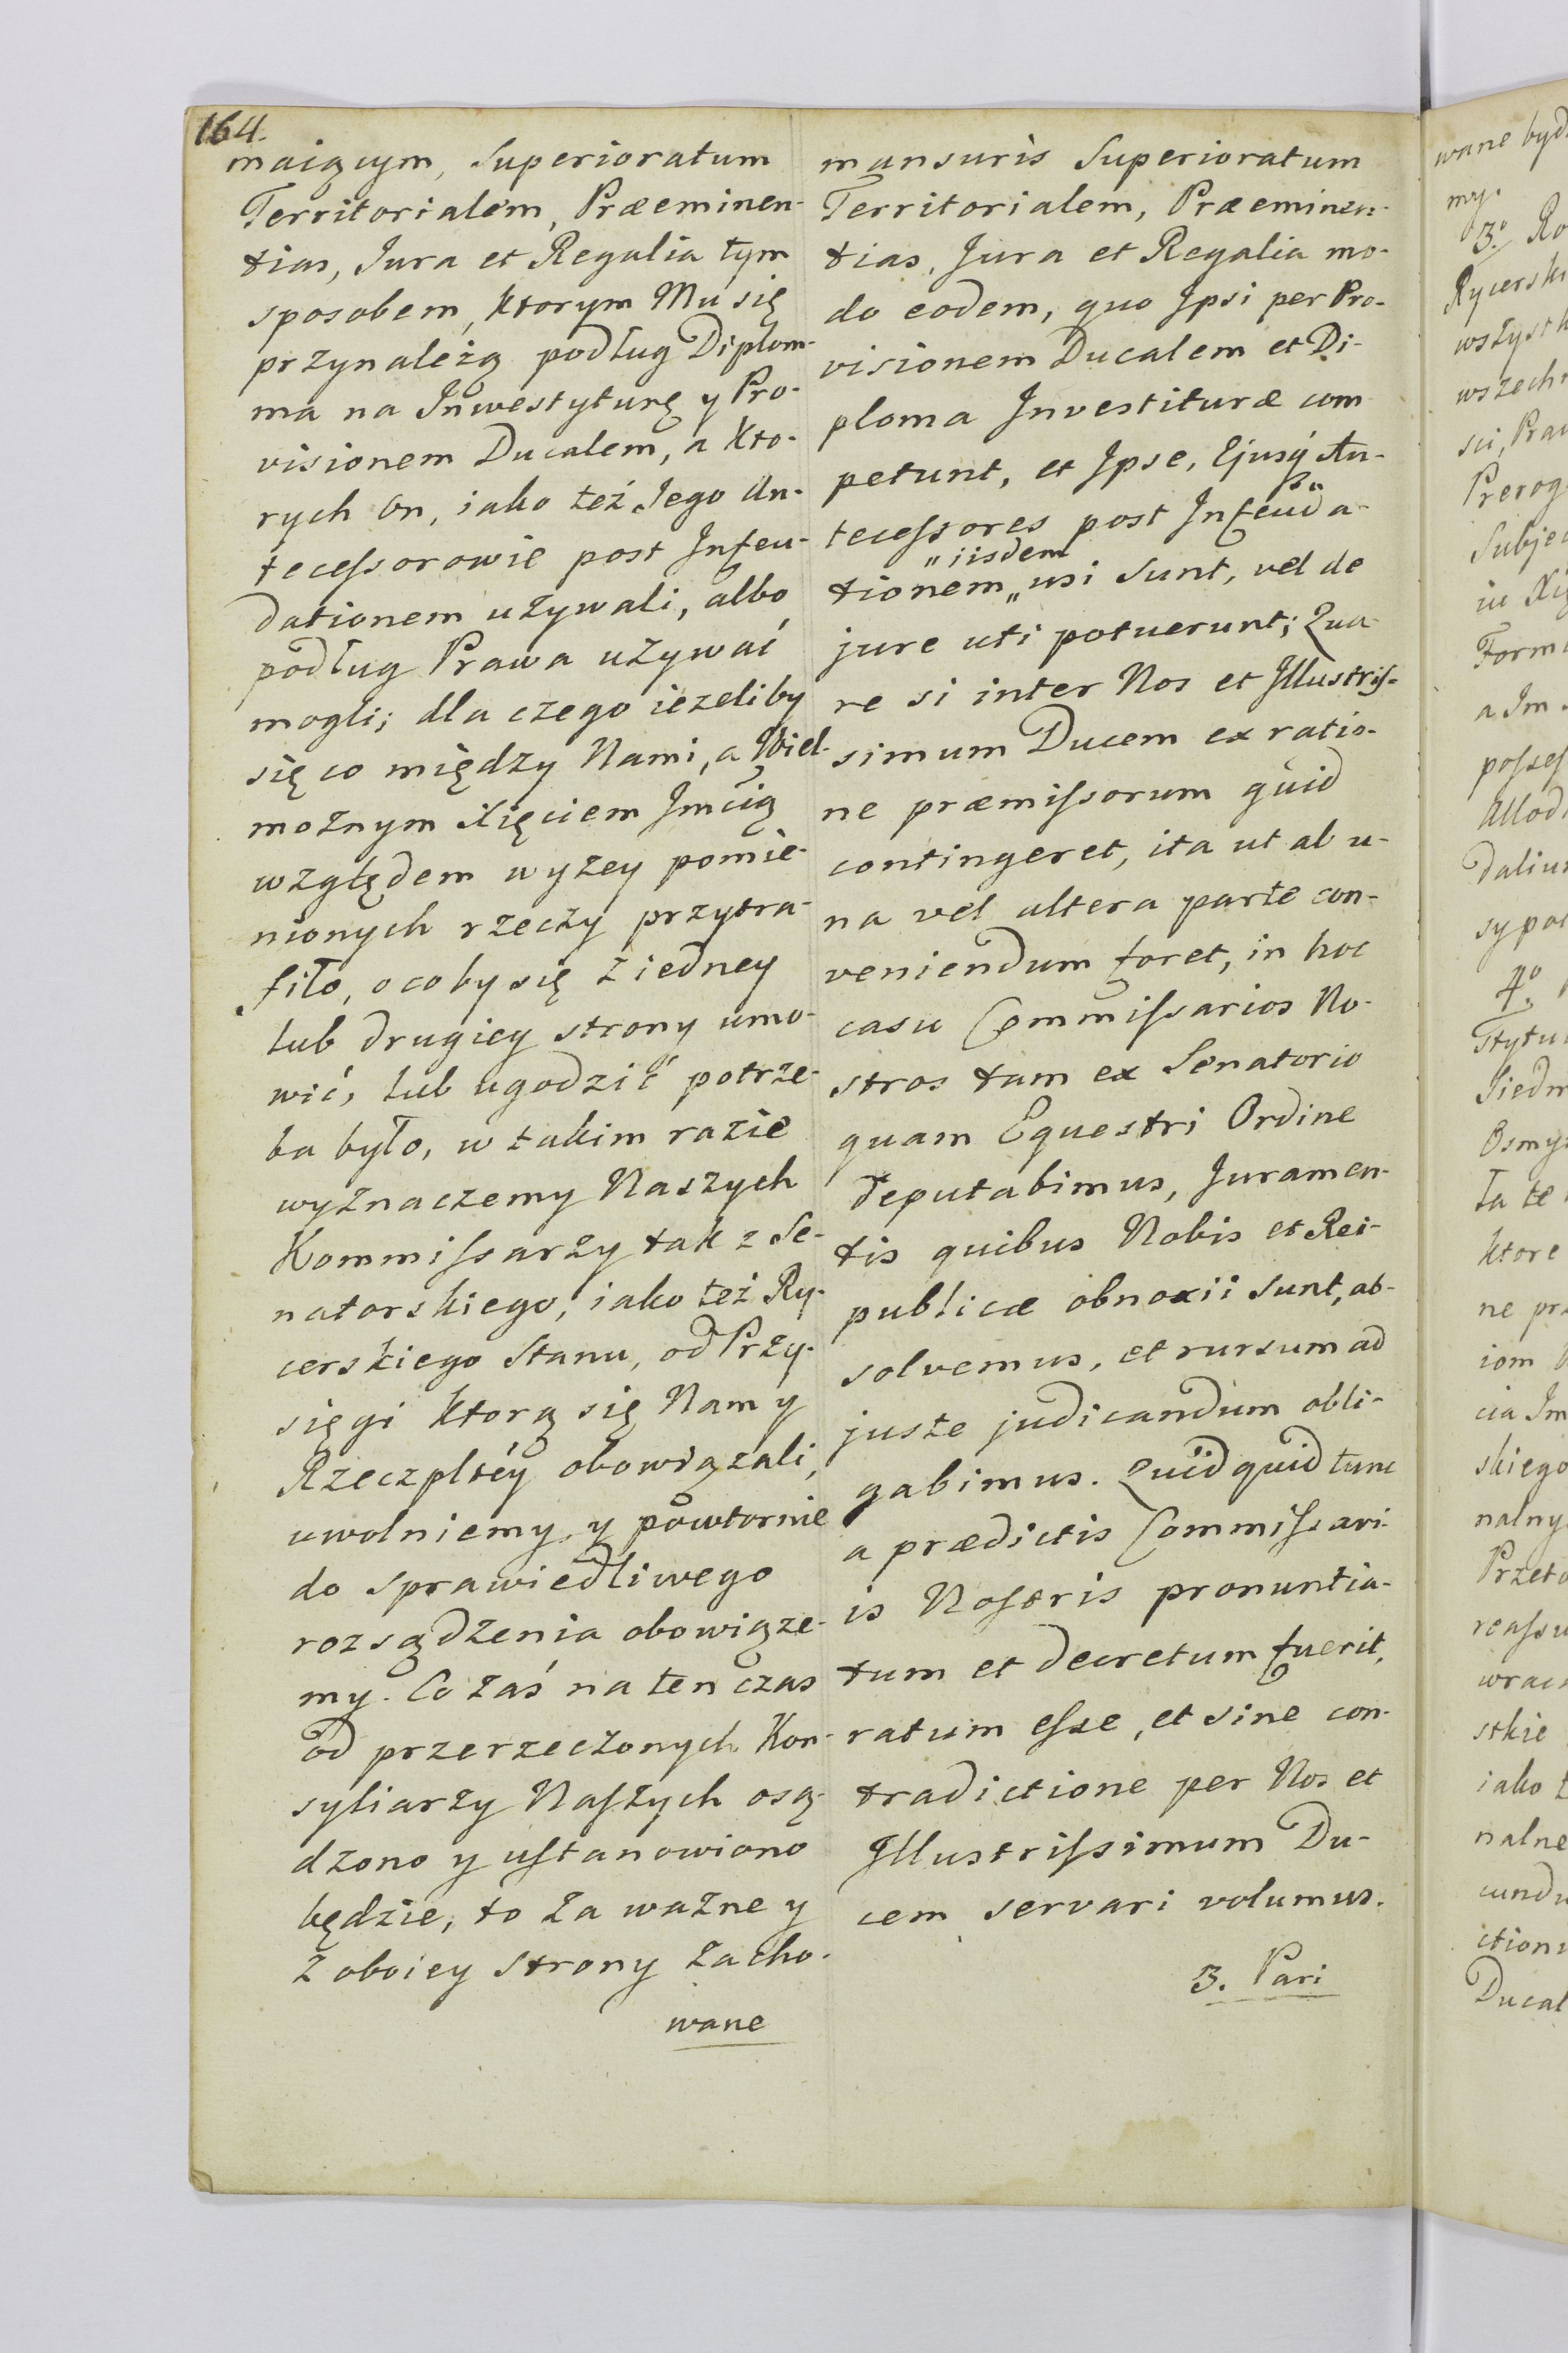 164.
maiącym, Superioratum
Territorialem, Præeminen-
tias, Jura et Regalia tym
sposobem, ktorym Mu się
przynależą podług Diplom-
ma na Inwestyturę y Pro-
visionem Ducalem, a kto-
rych on, iako też Jego An-
tecessorowie post Infeu-
dationem używali, albo
podług Prawa używać
mogli; dla czego ieżeliby
się co między Nami, a Wiel-
możnym Xięciem Jmcią
względem wyżey pomie-
nionych rzeczy przytra-
fiło, o coby się z iedney
lub drugiey strony umo-
wić, lub ugodzić potrze-
ba było, w takim razie
wyznaczemy Naszych
Kommissarzy tak z Se-
natorskiego, iako też Ry-
cerskiego Stanu, od Przy-
sięgi ktorą się Nam y
Rzeczpltéy obowiązali,
uwolniemy, y powtornie
do sprawiedliwego
rozsądzenia obowiąze-
my. Co zaś na ten czas
od przerzeczonych Kon-
syliarzy Naszych osą-
dzono y ustanowiono
będzie, to za ważne y
z oboiey strony zacho-
wane
mansuris Superioratum
Territorialem, Præeminen-
tias, Jura et Regalia mo-
do eodem, quo Ipsi per Pro-
visionem Ducalem et Di-
ploma Investituræ com
petunt, et Ipse, Ejusq An-
tecessores post Infeuda-
"iisdem
tionem „ usi sunt, vel de
jure uti potuerunt; Qua-
re si inter Nos et Illustris-
simum Ducem ex ratio-
ne præmissorum quid
contingeret, ita ut ab u-
na vel altera parte con-
veniendum foret, in hoc
casu Commissarios No-
stros tam ex Senatorio
quam Equestri Ordine
deputabimus, Juramen-
tis quibus Nobis et Rei-
publicæ obnoxii sunt, ab-
solvemus, et rursum ad
juste judicandum obli-
gabimus. Quidquid tunc
a prædictis Commissari-
is Nostris pronuntia-
tum et decretum fuerit,
ratum esse, et sine con-
tradictione per Nos et
Illustrissimum Du-
cem servari volumus.
3. Pari
wane byd
my.
3.° Ro
Rycersk
wszystk
wszech
sci, Praw
Prerog
Subjec
iu Xię
Form
a Jm
posses
Allod
daliu
sy po
4.°
Stytu
Siedm
Osmy
ta te
ktore
ne pr
iom
cia Jm
skiego
nalny
Przeto
reassu
wrac
stkie
iako
nalne
cundu
ction
Ducal